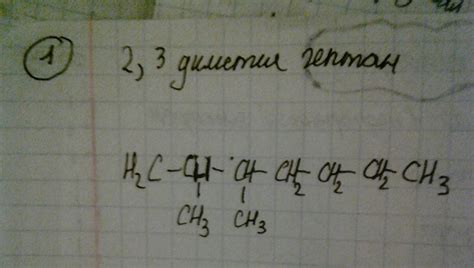 1 2, 3 диметил гептан
H₂C – CH – CH – CH₂ – CH₂ – CH₂ – CH₃
CH₃ CH₃